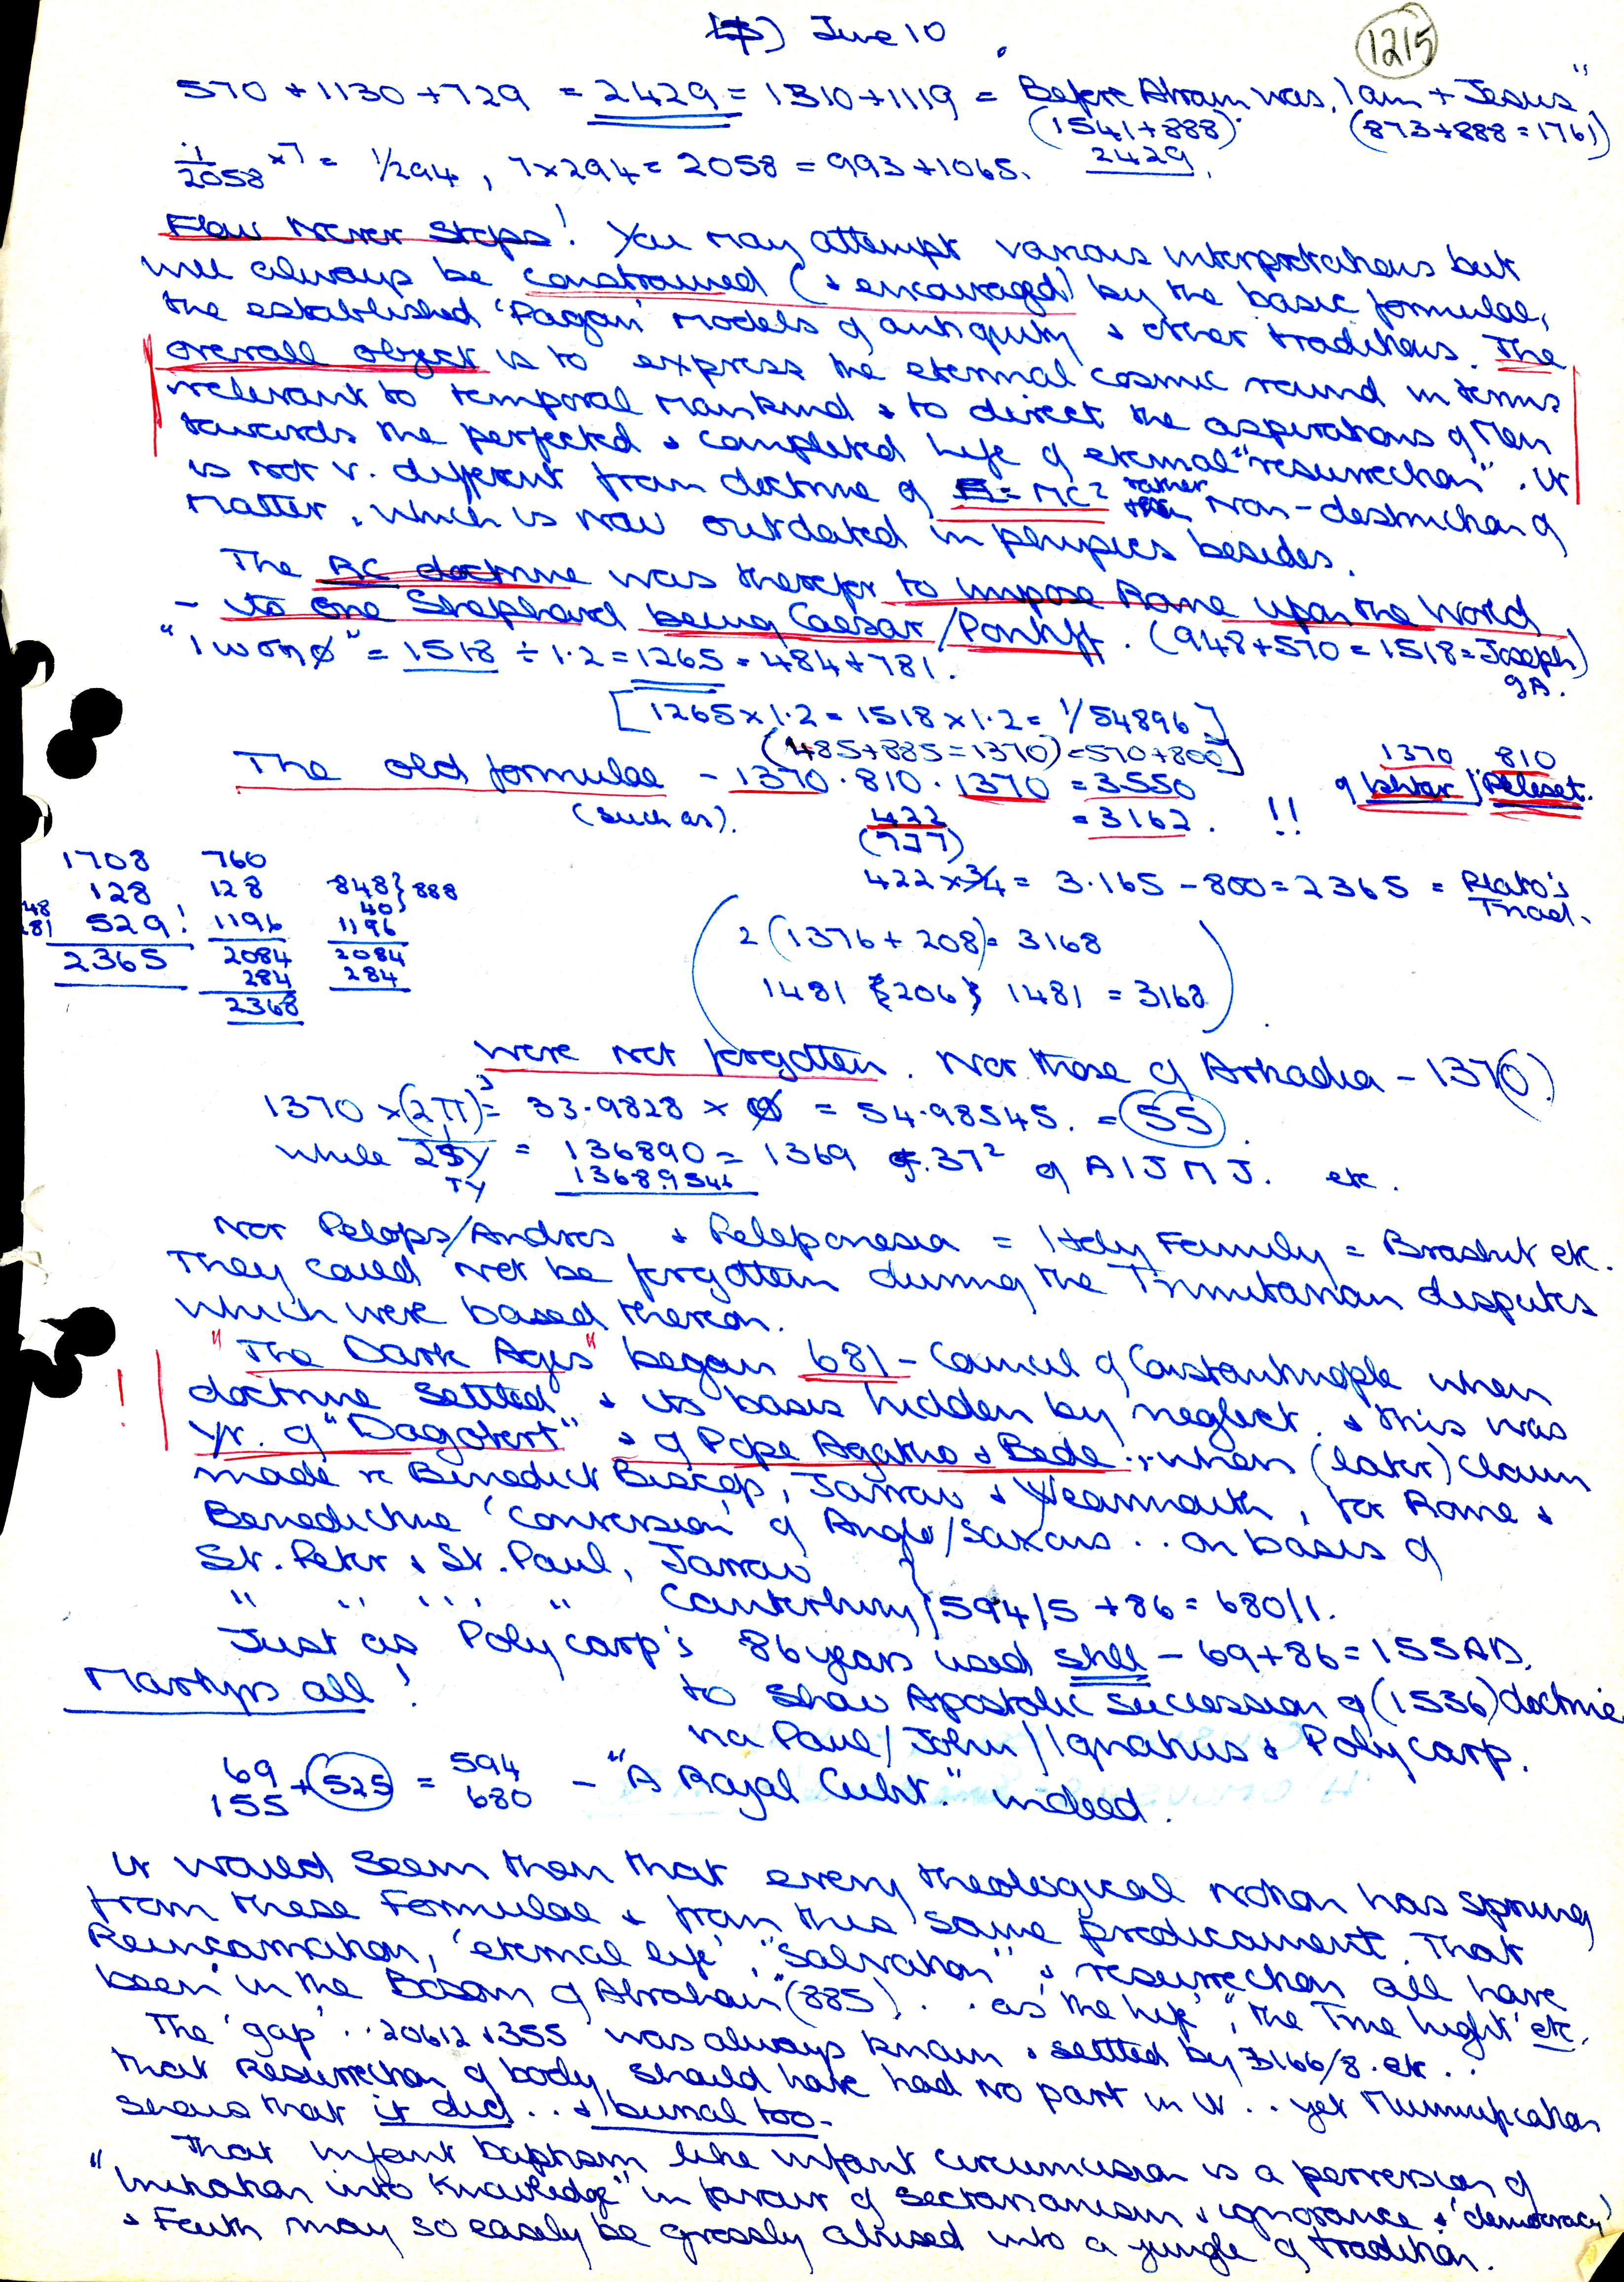 June 10
1215
570 + 1130 + 729 = 2429 = 1310 + 1119 = Before Abram was, I am + Jesus"
(1541 + 888) (873 + 888 = 1761)
1/2058 x 7 = 1/294, 7 x 294 = 2058 = 993 + 1065. 2429.
Flow Never Stops! You may attempt various interpretations but
will always be constrained (& encouraged) by the basic formulae,
the established 'Pagan' models of antiquity & other traditions. The
overall object is to express the eternal cosmic round in terms
relevant to temporal mankind & to direct the aspirations of Men
towards the perfected & completed life of eternal "resurrection". It
is not v. different from doctrine of E = MC² rather than Non-destruction of
Matter, which is now outdated in physics besides.
The RC doctrine was therefor to impose Rome upon the World
- its one Shepherd being Caesar/Pontiff. (948 + 570 = 1518 = Joseph)
= 1518 ÷ 1.2 = 1265 = 484 + 781. gA.
[1265 x 1.2 = 1518 x 1.2 = 1/54896]
(485 + 885 = 1370) = 570 + 800]
The old formulae - 1370 . 810 . 1370 = 3550 1370 810
of Ishtar / Peleset.
(such as). 422 = 3162. !!
422 x 3/4 = 3.165 - 800 = 2365 = Plato's
Triad.
1708 760
128 128 848} 888
48 40
81 529! 1196 1196
2365 2084 2084
284 284
2368
2 (1376 + 208) = 3168
1481 {206} 1481 = 3168
were not forgotten. Nor those of Arkadia - 1370.
1370 x (2π)³ = 33.9828 x Ø = 54.98545. = 55
while = 136890 = 1369 of 37² of AIJMJ. etc.
1368.9546
Nor Pelops/Andros & Peloponesia = Holy Family = Brashit etc.
They could not be forgotten during the Trinitarian disputes
which were based thereon.
! "The Dark Ages" began 681 - Council of Constantinople when
doctrine settled & its basis hidden by neglect. & this was
yr. of "Dagobert" & of Pope Agatho & Bede.; when (later) claim
made re Benedict Biscop, Jarrow & Wearmouth, for Rome &
Benedictine 'Conversion' of Anglo/Saxons .. on basis of
St. Peter & St. Paul, Jarrow
" " " " Canterbury } 594/5 + 86 = 680/1.
Just as Polycarp's 86 years used still - 69 + 86 = 155 AD.
Martyrs all! to show Apostolic succession of (1536) doctrine
via Paul/John/Ignatius & Polycarp.
69 + 525 = 594 - "A Royal Cubit." indeed.
155 680
It would seem then that every theological notion has sprung
from these Formulae & from this same predicament. That
Reincarnation, 'eternal life', "Salvation" & resurrection all have
been "in the Bosom of Abraham" (885) .. as 'the life', "the True light" etc.
The 'gap' .. 20612 & 355 was always known & settled by 3166/8. etc ..
that Resurrection of body should have had no part in it .. yet Mummification
shows that it did .. & burial too.
That infant baptism like infant circumcision is a perversion of
"Initiation into Knowledge" in favour of sectarianism & ignorance & 'democracy'
& Faith may so easily be grossly abused into a jungle of tradition.